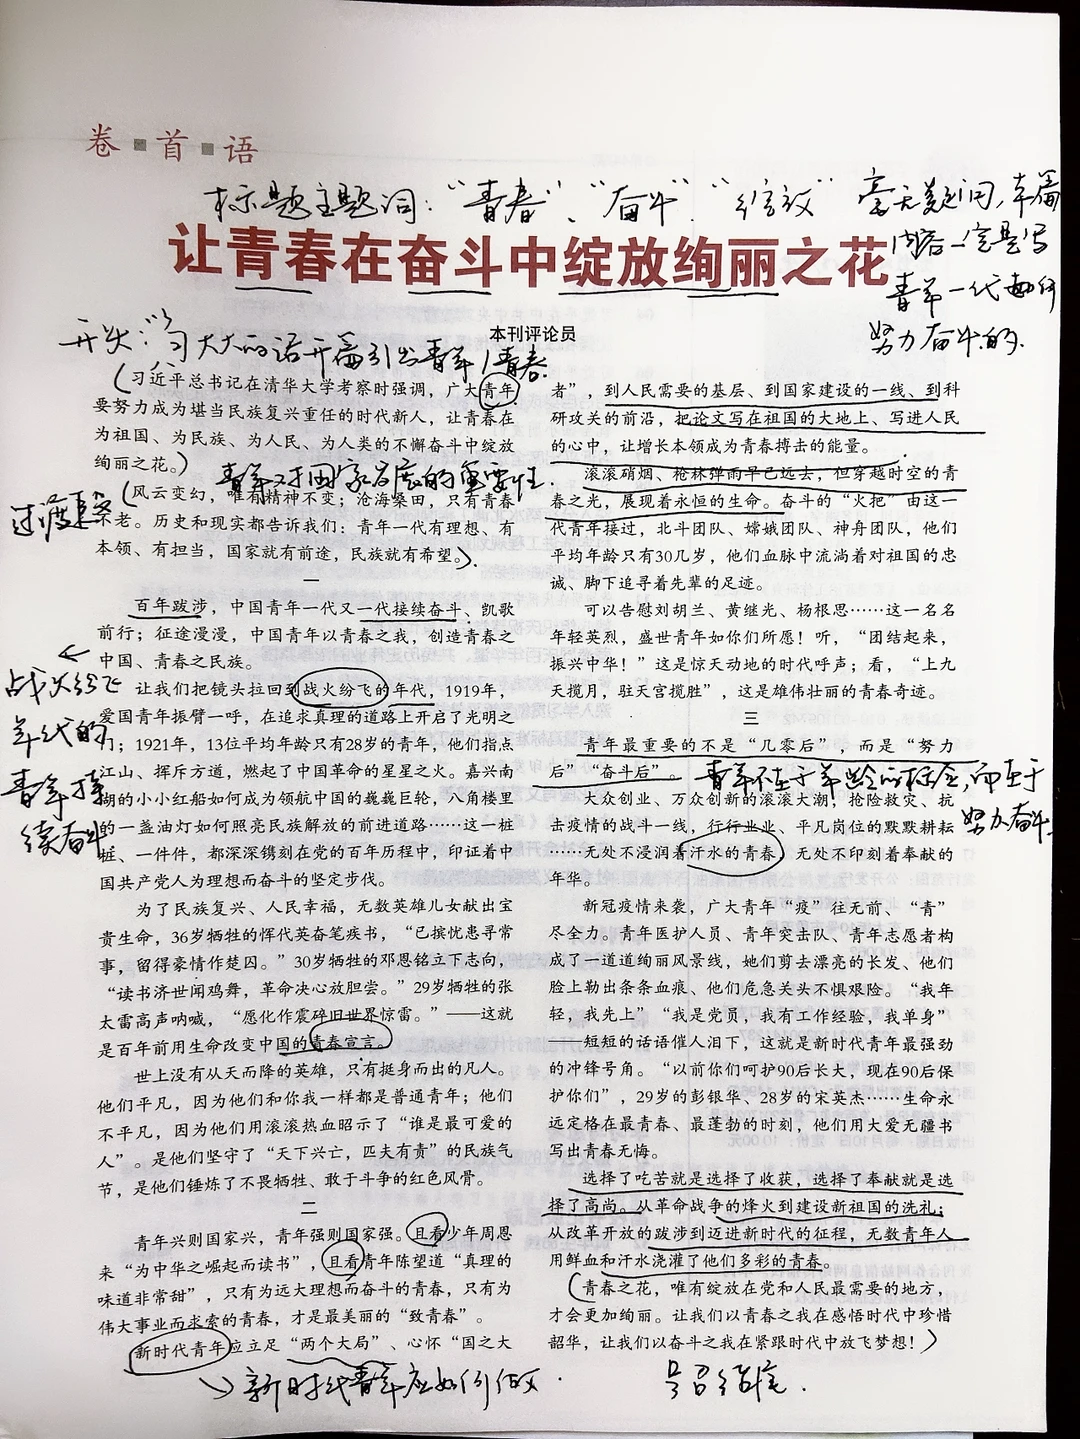 卷·首·语
标题主题词：“青春”、“奋斗”、“绽放”
毫无疑问，本篇
内容一定是写
青年一代如何
努力奋斗的.
让青春在奋斗中绽放绚丽之花
本刊评论员
开头：习大大的话开篇引出青年/青春
习近平总书记在清华大学考察时强调，广大青年
要努力成为堪当民族复兴重任的时代新人，让青春在
为祖国、为民族、为人民、为人类的不懈奋斗中绽放
绚丽之花。
青年对国家发展的重要性.
过渡
风云变幻，唯有精神不变；沧海桑田，只有青春
不老。历史和现实都告诉我们：青年一代有理想、有
本领、有担当，国家就有前途，民族就有希望。
一
百年跋涉，中国青年一代又一代接续奋斗、凯歌
前行；征途漫漫，中国青年以青春之我，创造青春之
中国、青春之民族。
战火纷飞
年代的
青年接
续奋斗
让我们把镜头拉回到战火纷飞的年代，1919年，
爱国青年振臂一呼，在追求真理的道路上开启了光明之
门；1921年，13位平均年龄只有28岁的青年，他们指点
江山、挥斥方遒，燃起了中国革命的星星之火。嘉兴南
湖的小小红船如何成为领航中国的巍巍巨轮，八角楼里
的一盏油灯如何照亮民族解放的前进道路……这一桩
桩、一件件，都深深镌刻在党的百年历程中，印证着中
国共产党人为理想而奋斗的坚定步伐。
为了民族复兴、人民幸福，无数英雄儿女献出宝
贵生命，36岁牺牲的恽代英奋笔疾书，“已摈忧患寻常
事，留得豪情作楚囚。”30岁牺牲的邓恩铭立下志向，
“读书济世闻鸡舞，革命决心放胆尝。”29岁牺牲的张
太雷高声呐喊，“愿化作震碎旧世界惊雷。”——这就
是百年前用生命改变中国的青春宣言。
世上没有从天而降的英雄，只有挺身而出的凡人。
他们平凡，因为他们和你我一样都是普通青年；他们
不平凡，因为他们用滚滚热血昭示了“谁是最可爱的
人”。是他们坚守了“天下兴亡，匹夫有责”的民族气
节，是他们锤炼了不畏牺牲、敢于斗争的红色风骨。
二
青年兴则国家兴，青年强则国家强。且看少年周恩
来“为中华之崛起而读书”，且看青年陈望道“真理的
味道非常甜”，只有为远大理想而奋斗的青春，只有为
伟大事业而求索的青春，才是最美丽的“致青春”。
新时代青年应立足“两个大局”、心怀“国之大
新时代青年应如何做.
者”，到人民需要的基层、到国家建设的一线、到科
研攻关的前沿，把论文写在祖国的大地上、写进人民
的心中，让增长本领成为青春搏击的能量。
滚滚硝烟、枪林弹雨早已远去，但穿越时空的青
春之光，展现着永恒的生命。奋斗的“火把”由这一
代青年接过，北斗团队、嫦娥团队、神舟团队，他们
平均年龄只有30几岁，他们血脉中流淌着对祖国的忠
诚、脚下追寻着先辈的足迹。
可以告慰刘胡兰、黄继光、杨根思……这一名名
年轻英烈，盛世青年如你们所愿！听，“团结起来，
振兴中华！”这是惊天动地的时代呼声；看，“上九
天揽月，驻天宫揽胜”，这是雄伟壮丽的青春奇迹。
三
青年最重要的不是“几零后”，而是“努力
后”“奋斗后”。
青年不在于年龄的标签，而在于
努力奋斗
大众创业、万众创新的滚滚大潮，抢险救灾、抗
击疫情的战斗一线，行行业业、平凡岗位的默默耕耘
……无处不浸润着汗水的青春，无处不印刻着奉献的
年华。
新冠疫情来袭，广大青年“疫”往无前、“青”
尽全力。青年医护人员、青年突击队、青年志愿者构
成了一道道绚丽风景线，她们剪去漂亮的长发、他们
脸上勒出条条血痕、他们危急关头不惧艰险。“我年
轻，我先上”“我是党员，我有工作经验，我单身”
——短短的话语催人泪下，这就是新时代青年最强劲
的冲锋号角。“以前你们呵护90后长大，现在90后保
护你们”，29岁的彭银华、28岁的宋英杰……生命永
远定格在最青春、最蓬勃的时刻，他们用大爱无疆书
写出青春无悔。
选择了吃苦就是选择了收获，选择了奉献就是选
择了高尚。从革命战争的烽火到建设新祖国的洗礼；
从改革开放的跋涉到迈进新时代的征程，无数青年人
用鲜血和汗水浇灌了他们多彩的青春。
青春之花，唯有绽放在党和人民最需要的地方，
才会更加绚丽。让我们以青春之我在感悟时代中珍惜
韶华，让我们以奋斗之我在紧跟时代中放飞梦想！
号召结尾.